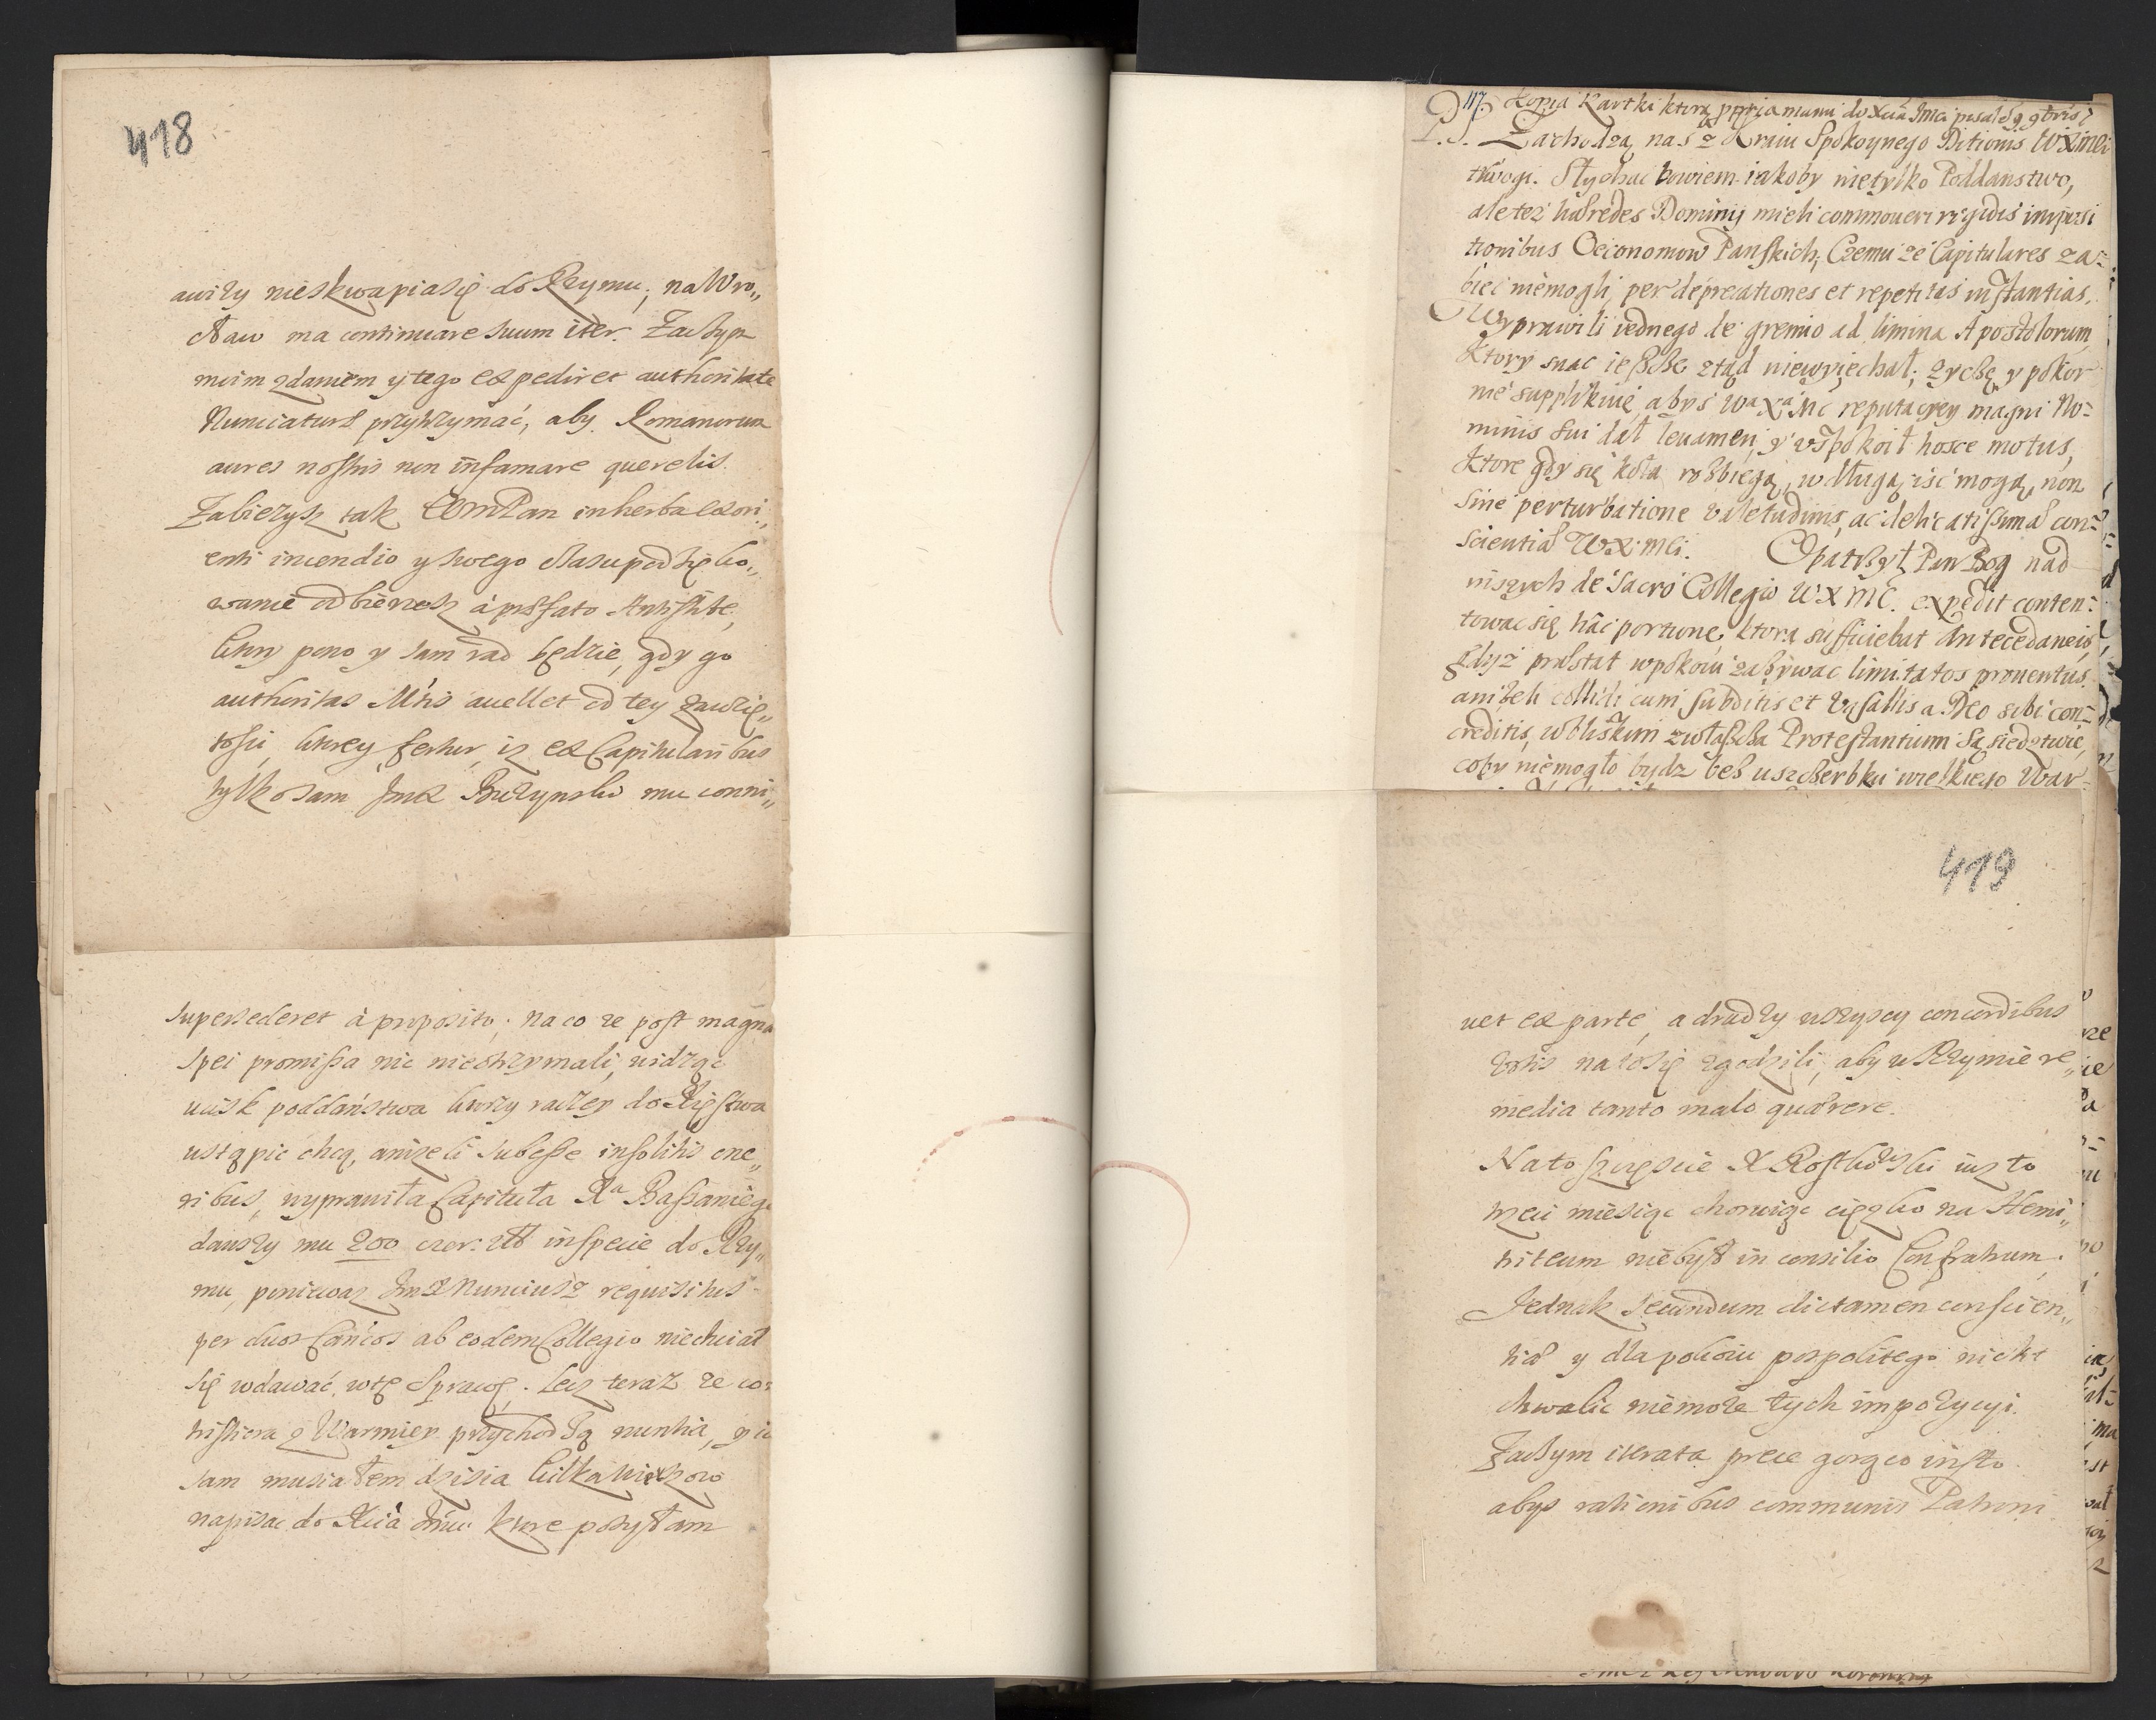 418
awizy nieskwapia się do Rzymu, na Wro„
cław ma continuare suum iter. Zaczym
moim zdaniem y tego expediret authoritate
Nunciaturæ przytrzymać, aby Romanorum
aures nostris non infamare querelis.
Zabieżysz tak WmPan in herba exori„
enti incendio y swego czasu podzięko„
wanie odbierzesz à præfato Antistite,
ktory pono y sam rad będzie, gdy go
authoritas Mtris avellet od tey zawzię„
tości, ktorey fertur, iż ex Capitularibus
tylko sam JmX Buczynski mu conni„
supersederet à proposito; na co że post magna
spei promissa nic nieotrzymali, widząc
ucisk poddaństwa ktorzy raczey do Xięstwa
ustąpić chcą, aniżeli subesse insolitis one„
ribus, wyprawiła Capituła Xa Bassaniego
dawszy mu 200 czer: zło in specie do Rzy„
mu, ponieważ JmX Nunciusz requisitus
per duos Cancos ab eodem Collegio niechciał
się wdawać w tę Sprawę. Lecz teraz że co„
tristiora z Warmiey przychodzą nuntia, y ia
sam musiałem dzisia kilka wierszow
napisac do Xcia Jmci ktore posyłam
117. Kopia Kartki ktorą propria manu do Xcia Jmci pisał 9 9bris
P.S. Zachodzą nas z Kraiu Spokoynego Ditionis WXMci
trwogi. Słychac bowiem iakoby nietylko Poddanstwo,
ale tez hæredes Dominij mieli commoveri rigidis imposi
tionibus Oeconomow Panskich, Czemu ze Capitulares za=
biec niemogli, per deprecationes et repetitas instantias,
Wyprawili iednego de gremio ad limina Apostolorum,
Ktory snac ieszcze ztąd niewyiechał; zyczę y pokor
nie supplikuię, abys WaXaMc reputacyey magni No=
minis sui dał levamen, y uspokoił hosce motus,
Ktore gdy się koła rozbiegą, w długą isć mogą, non
sine perturbatione valetudinis, ac delicatissimæ con=
scientiæ WXMci. Opatrzył Pan Bog nad
niszych de Sacro Collegio WXMC. expedit conten=
towac się hâc portione, ktora sufficiebat Antecedaneis,
gdyz præstat w pokoiu zazywac limitatos proventus
anizeli collidi cum subditis et Vasallis a Deo sibi con=
creditis, w bliskim zwłaszcza Protestantium Sąsiedztwie,
coby niemogło bydz bez uszczerbku wielkiego War=
419
vet ex parte, a drudzy wszyscy concordibus
votis na to się zgodzili, aby w Rzymie re„
media tanto malo quærere.
Na to szczęscie X Rostkowski iuz to
trzeci miesiąc choruiąc cięzko na Hemi„
triteum niebył in consilio Confratrum.
Jednak secundum dictamen conscien„
tiæ y dla pokoiu pospolitego nicht
chwalic niemoże tych impozycyi.
Zaczym iterata prece gorąco insto
abys rationibus communis Patroni